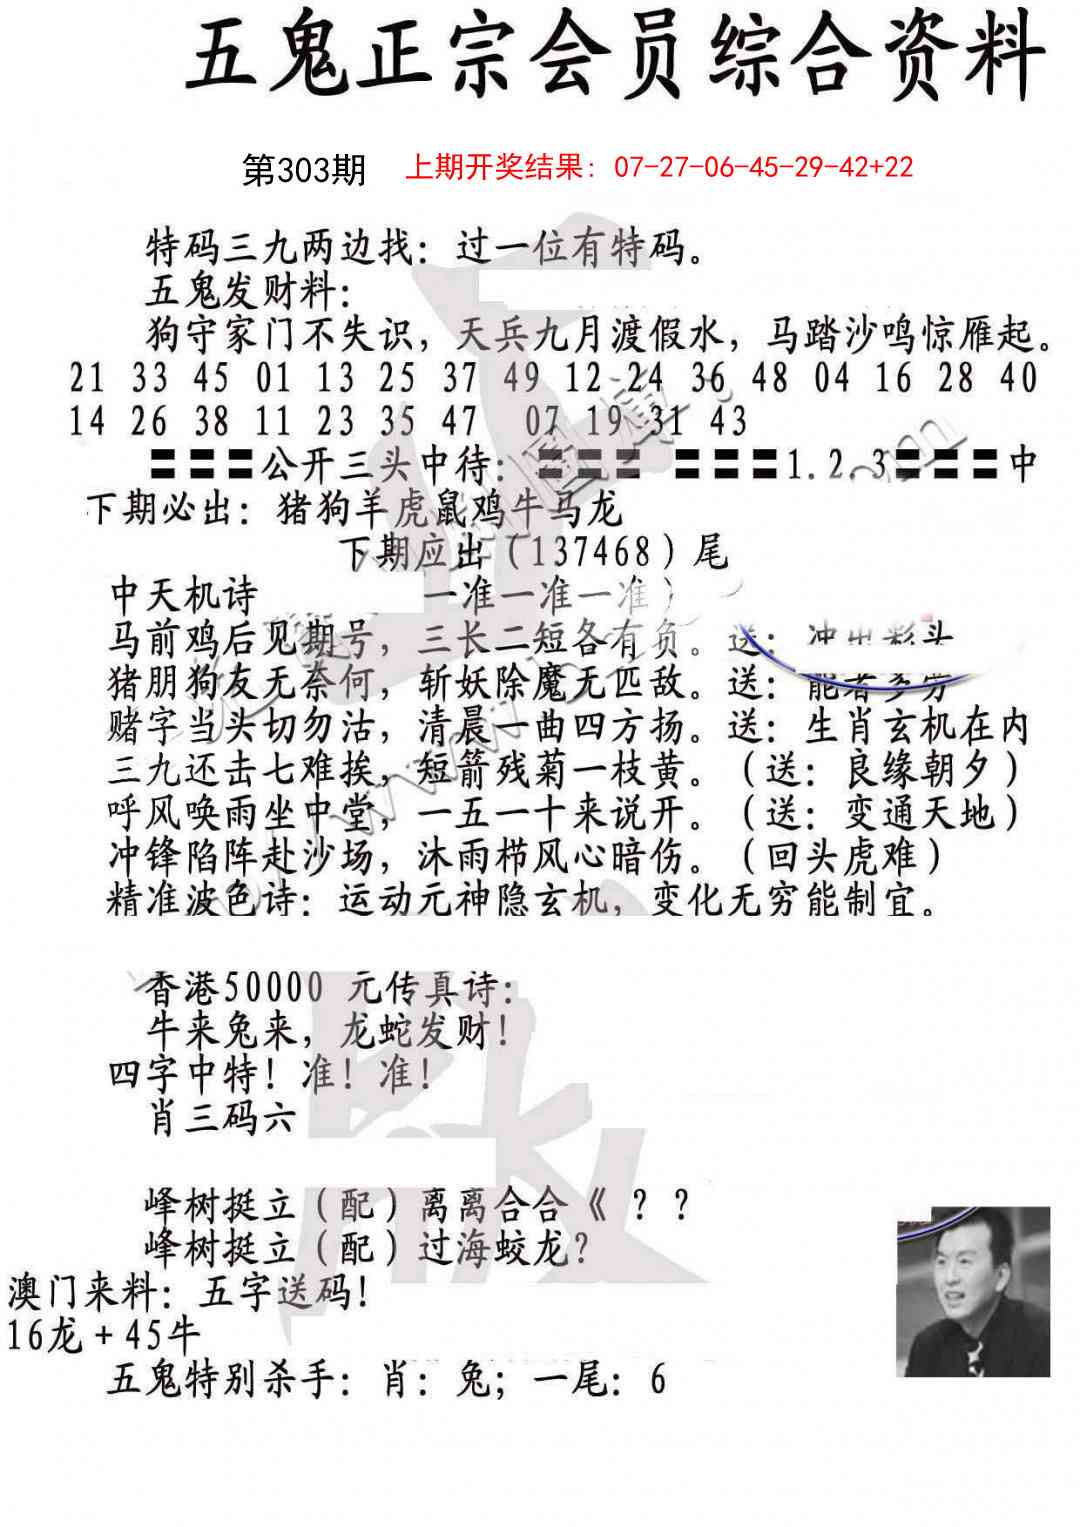 五鬼正宗会员综合资料
第303期 上期开奖结果：07-27-06-45-29-42+22
特码三九两边找：过一位有特码。
五鬼发财料：
狗守家门不失识，天兵九月渡假水，马踏沙鸣惊雁起。
21 33 45 01 13 25 37 49 12 24 36 48 04 16 28 40
14 26 38 11 23 35 47 07 19 31 43
〓〓〓公开三头中待：〓〓〓 〓〓〓1.2.3〓〓〓中
下期必出：猪狗羊虎鼠鸡牛马龙
下期应出（137468）尾
中天机诗 一准一准一准）
马前鸡后见期号，三长二短各有负。送：冲出彩头
猪朋狗友无奈何，斩妖除魔无匹敌。送：能者多劳
赌字当头切勿沽，清晨一曲四方扬。送：生肖玄机在内
三九还击七难挨，短箭残菊一枝黄。（送：良缘朝夕）
呼风唤雨坐中堂，一五一十来说开。（送：变通天地）
冲锋陷阵赴沙场，沐雨栉风心暗伤。（回头虎难）
精准波色诗：运动元神隐玄机，变化无穷能制宜。
香港50000 元传真诗：
牛来兔来，龙蛇发财！
四字中特！准！准！
肖三码六
峰树挺立（配）离离合合《？？
峰树挺立（配）过海蛟龙？
澳门来料：五字送码！
16龙+45牛
五鬼特别杀手：肖：兔；一尾：6